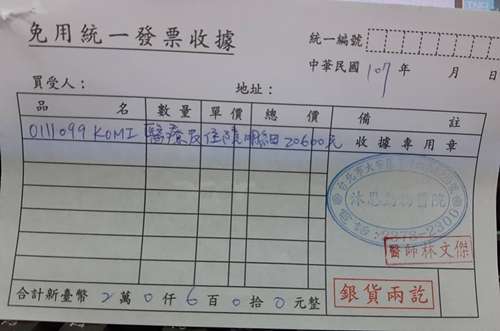 免用統一發票收據
統一編號
中華民國 107 年 月 日
買受人： 地址：
品名 數量 單價 總價 備註
0111099 KOMI 醫療及住院明細 20600元 收據專用章
台北市大安區
沐恩動物醫院
電話:2378-2300
醫師林文傑
合計新臺幣 2 萬 0 仟 6 百 0 拾 0 元整
銀貨兩訖